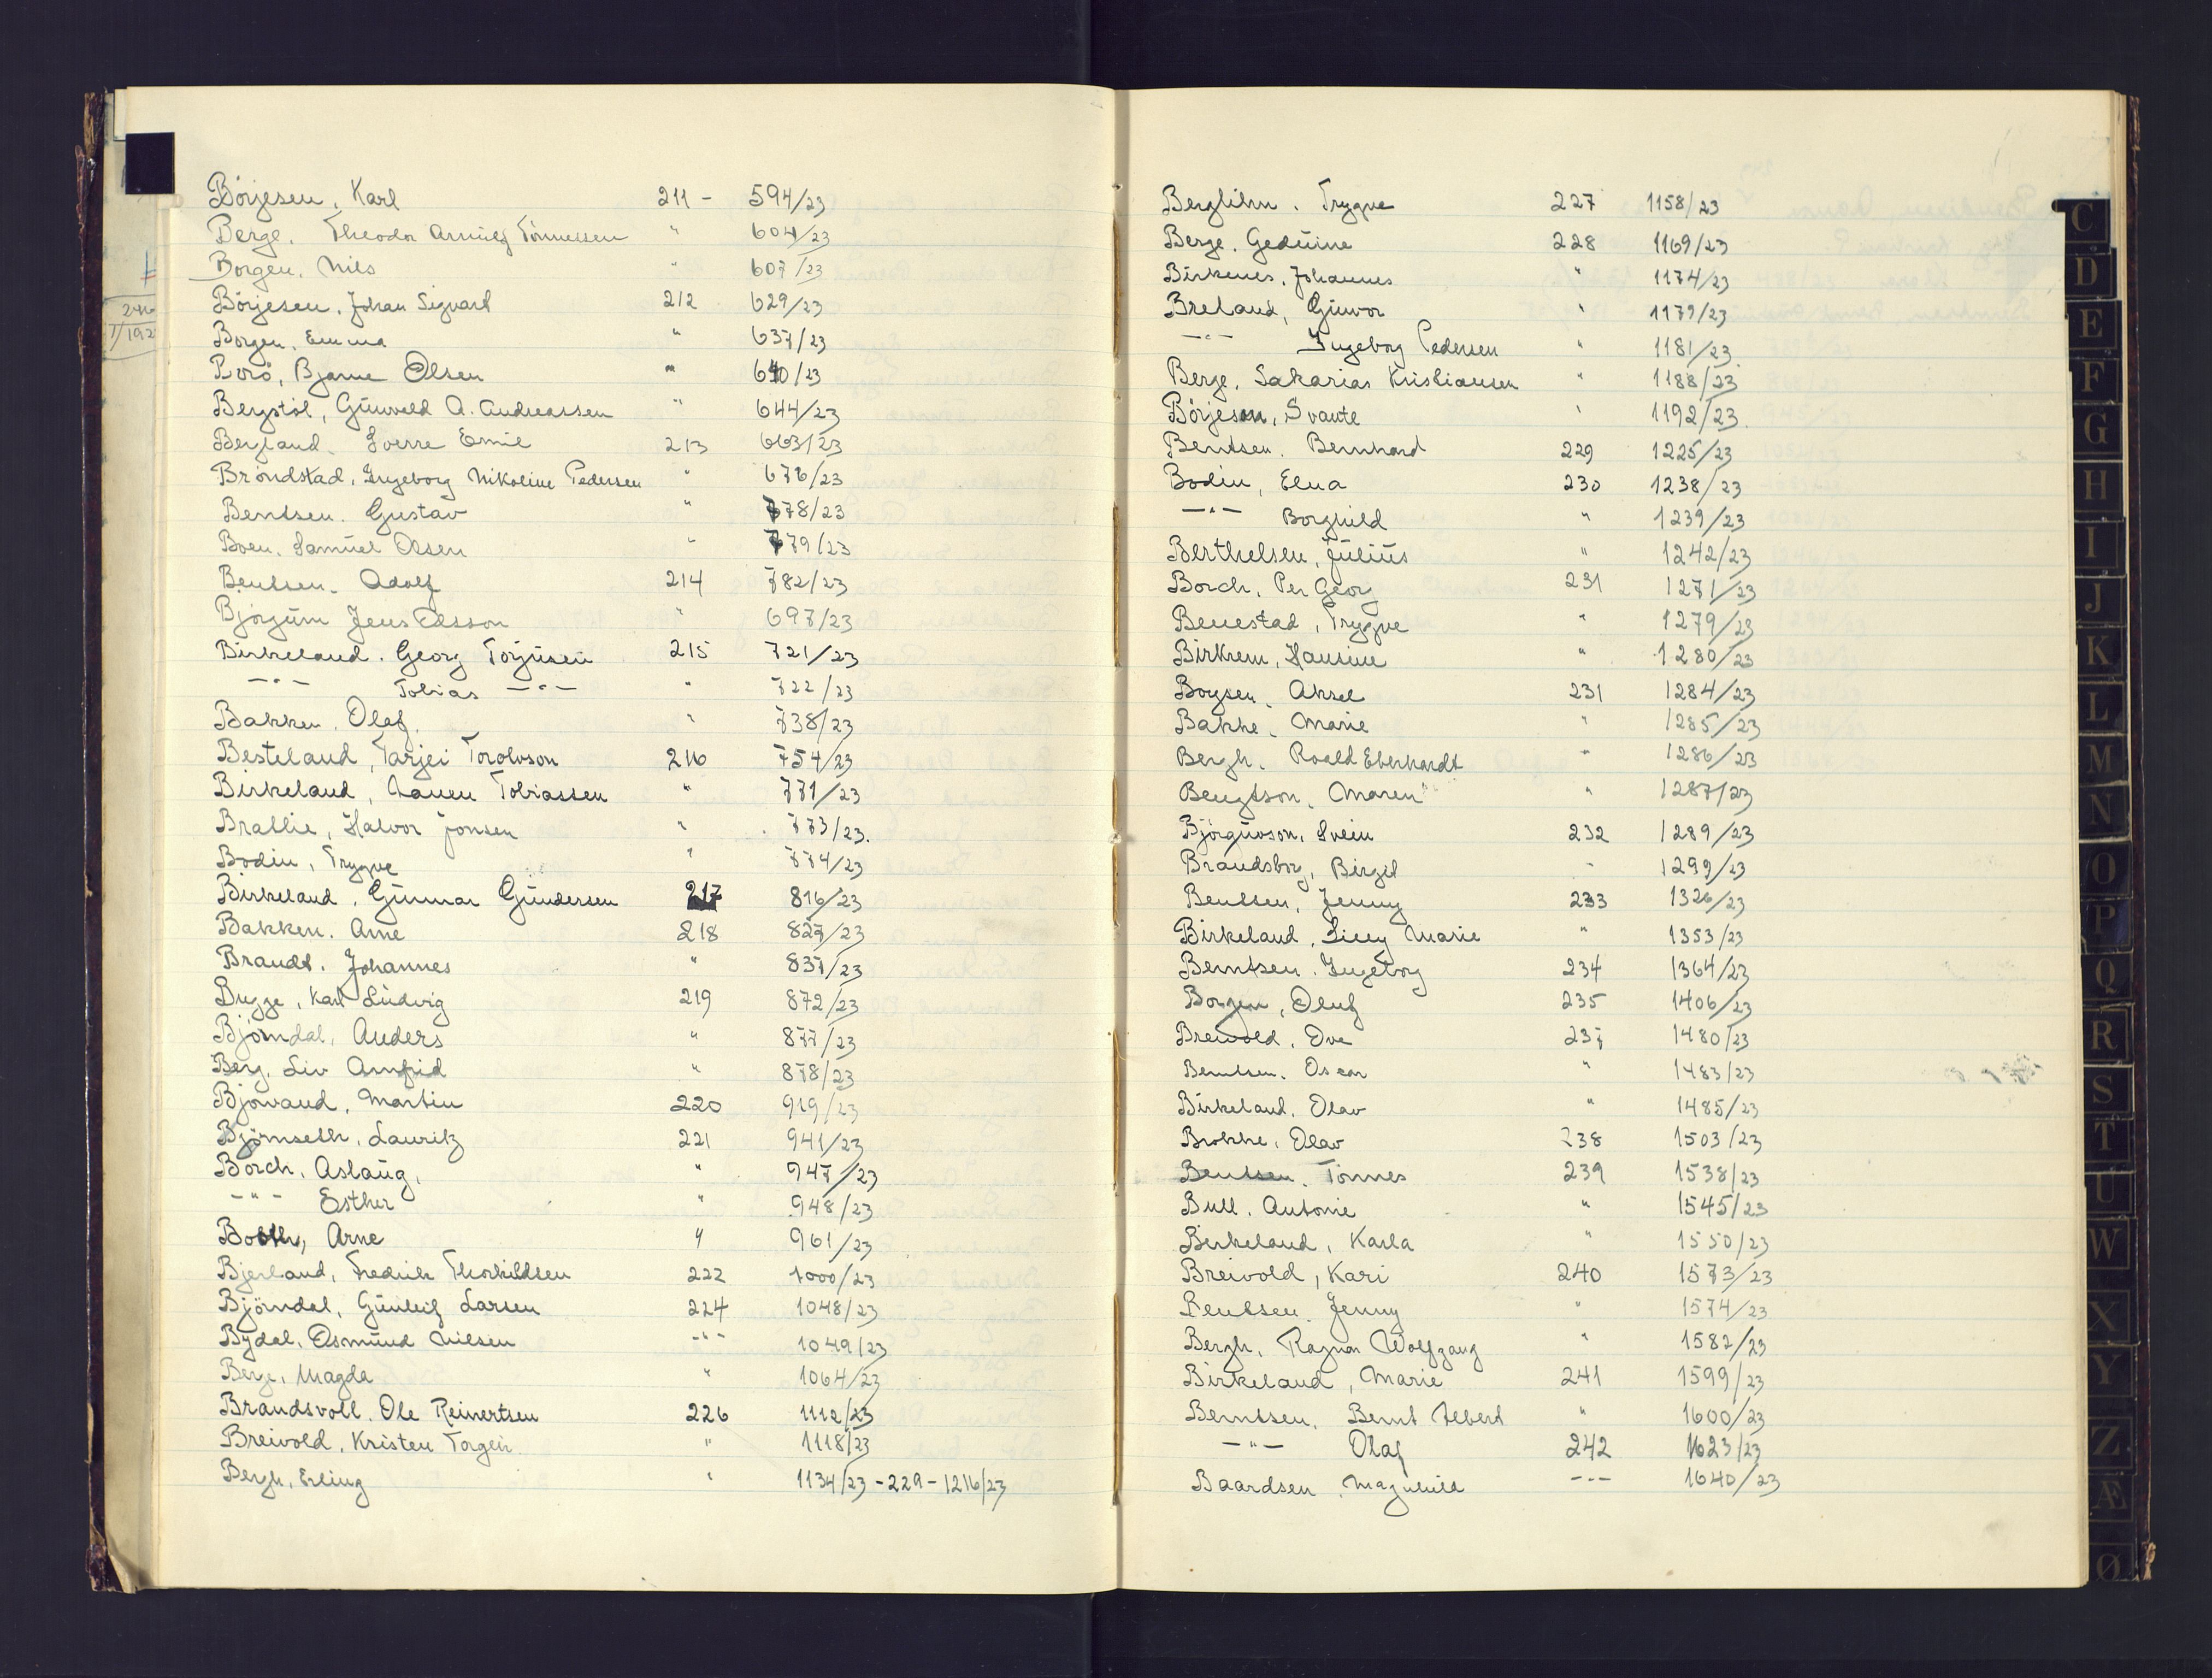 Börjesen, Karl 211 - 594/23
Berge, Theodor Arnulf Tönnessen " 604/23
Borgen, Nils " 607/23
Börjesen, Johan Sigvart 212 629/23
Borgen, Emma " 637/23
Borö, Bjarne Olsen " 640/23
Bergstöl, Gunvald A. Andreassen " 644/23
Bergland, Sverre Emil 213 663/23
Bröndstad, Ingeborg Nikoline Pedersen " 676/23
Bentsen, Gustav " 778/23
Boen, Samuel Olsen " 779/23
Bentsen, Adolf 214 782/23
Björgum Jens Olsson " 697/23
Birkeland, Georg Torjusen 215 721/23
-"- Tobias -"- " 722/23
Bakken, Olaf " 738/23
Besteland, Tarjei Torolvson 216 754/23
Birkeland, Lauen Tobiassen " 771/23
Brallie, Halvor Jonsen " 773/23.
Bodin, Trygve " 774/23
Birkeland, Gunnar Gundersen 217 816/23
Bakken, Arne 218 827/23
Brandt, Johannes " 837/23
Bugge, Karl Ludvig 219 872/23
Björndal, Anders " 877/23
Berg, Liv Arnfrid " 878/23
Bjorvand, Martin 220 919/23
Björnseth, Lauritz 221 941/23
Borch, Aslaug, " 947/23
-"- Esther " 948/23
Booth, Arne " 961/23
Bjerland, Fredrik Thorkildsen 222 1000/23
Björndal, Gunleif Larsen 224 1048/23
Bydal, Osmund Nilsen -"- 1049/23
Berge, Magda " 1064/23
Brandsvoll, Ole Reinertsen 226 1112/23
Breivold, Kristen Torgeir " 1118/23
Bergh, Erling " 1134/23 - 229 - 1216/23
Berglihn, Trygve 227 1158/23
Berge, Geduine 228 1169/23
Birkenes, Johannes " 1174/23
Breland, Gunvor " 1179/23
-"- Ingeborg Pedersen " 1181/23
Berge, Sakarias Kristiansen " 1188/23
Börjeson, Svante " 1192/23
Bentsen, Bernhard 229 1225/23
Bodin, Elna 230 1238/23
-"- Borghild " 1239/23
Berthelsen, Julius " 1242/23
Borch, Per Georg 231 1271/23
Benestad, Trygve " 1279/23
Birkrem, Hansine " 1280/23
Boysen, Aksel 231 1284/23
Bakke, Marie " 1285/23
Bergh, Roald Eberhardt " 1286/23
Bengtson, Maren " 1287/23
Björguvson, Svein 232 1289/23
Brandsborg, Birgit " 1299/23
Bentsen, Jenny 233 1326/23
Birkeland, Lilly Marie " 1353/23
Berntsen, Ingeborg 234 1364/23
Borgen, Oluf 235 1406/23
Breivold, Ove 237 1480/23
Berntsen, Oscar " 1483/23
Birkeland, Olav " 1485/23
Brokke, Olav 238 1503/23
Bentsen, Tönnes 239 1538/23
Bull, Antonie " 1545/23
Birkeland, Karla " 1550/23
Breivold, Kari 240 1573/23
Bentsen, Jenny " 1574/23
Bergh, Ragnar Wolfgang " 1582/23
Birkeland, Marie 241 1599/23
Berntsen, Bernt Albert " 1600/23
-"- Olaf 242 1623/23
Baardsen, Magnhild -"- 1640/23
C
D
E
F
G
H
I
J
K
L
M
N
O
P
Q
R
S
T
U
W
X
Y
Z
Æ
Ø